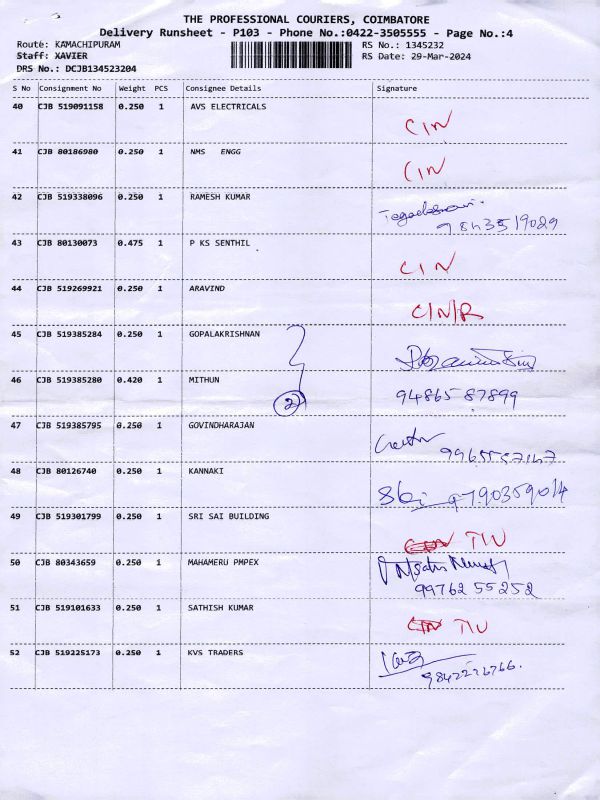 THE PROFESSIONAL COURIERS, COIMBATORE
Delivery Runsheet - P103 - Phone No.:0422-3505555 - Page No.:4
Route: KAMACHIPURAM RS No.: 1345232
Staff: XAVIER RS Date: 29-Mar-2024
DRS No.: DCJB134523204
S No Consignment No Weight PCS Consignee Details Signature
40 CJB 519091158 0.250 1 AVS ELECTRICALS CIN
41 CJB 80186980 0.250 1 NMS ENGG CIN
42 CJB 519338096 0.250 1 RAMESH KUMAR
9843519029
43 CJB 80130073 0.475 1 P KS SENTHIL CIN
44 CJB 519269921 0.250 1 ARAVIND CIN/R
45 CJB 519385284 0.250 1 GOPALAKRISHNAN
46 CJB 519385280 0.420 1 MITHUN 2 94865 87899
47 CJB 519385795 0.250 1 GOVINDHARAJAN
9965557147
48 CJB 80126740 0.250 1 KANNAKI 9790359014
49 CJB 519301799 0.250 1 SRI SAI BUILDING CIN TIU
50 CJB 80343659 0.250 1 MAHAMERU PMPEX
99762 55252
51 CJB 519101633 0.250 1 SATHISH KUMAR CIN TIU
52 CJB 519225173 0.250 1 KVS TRADERS
9842226766.